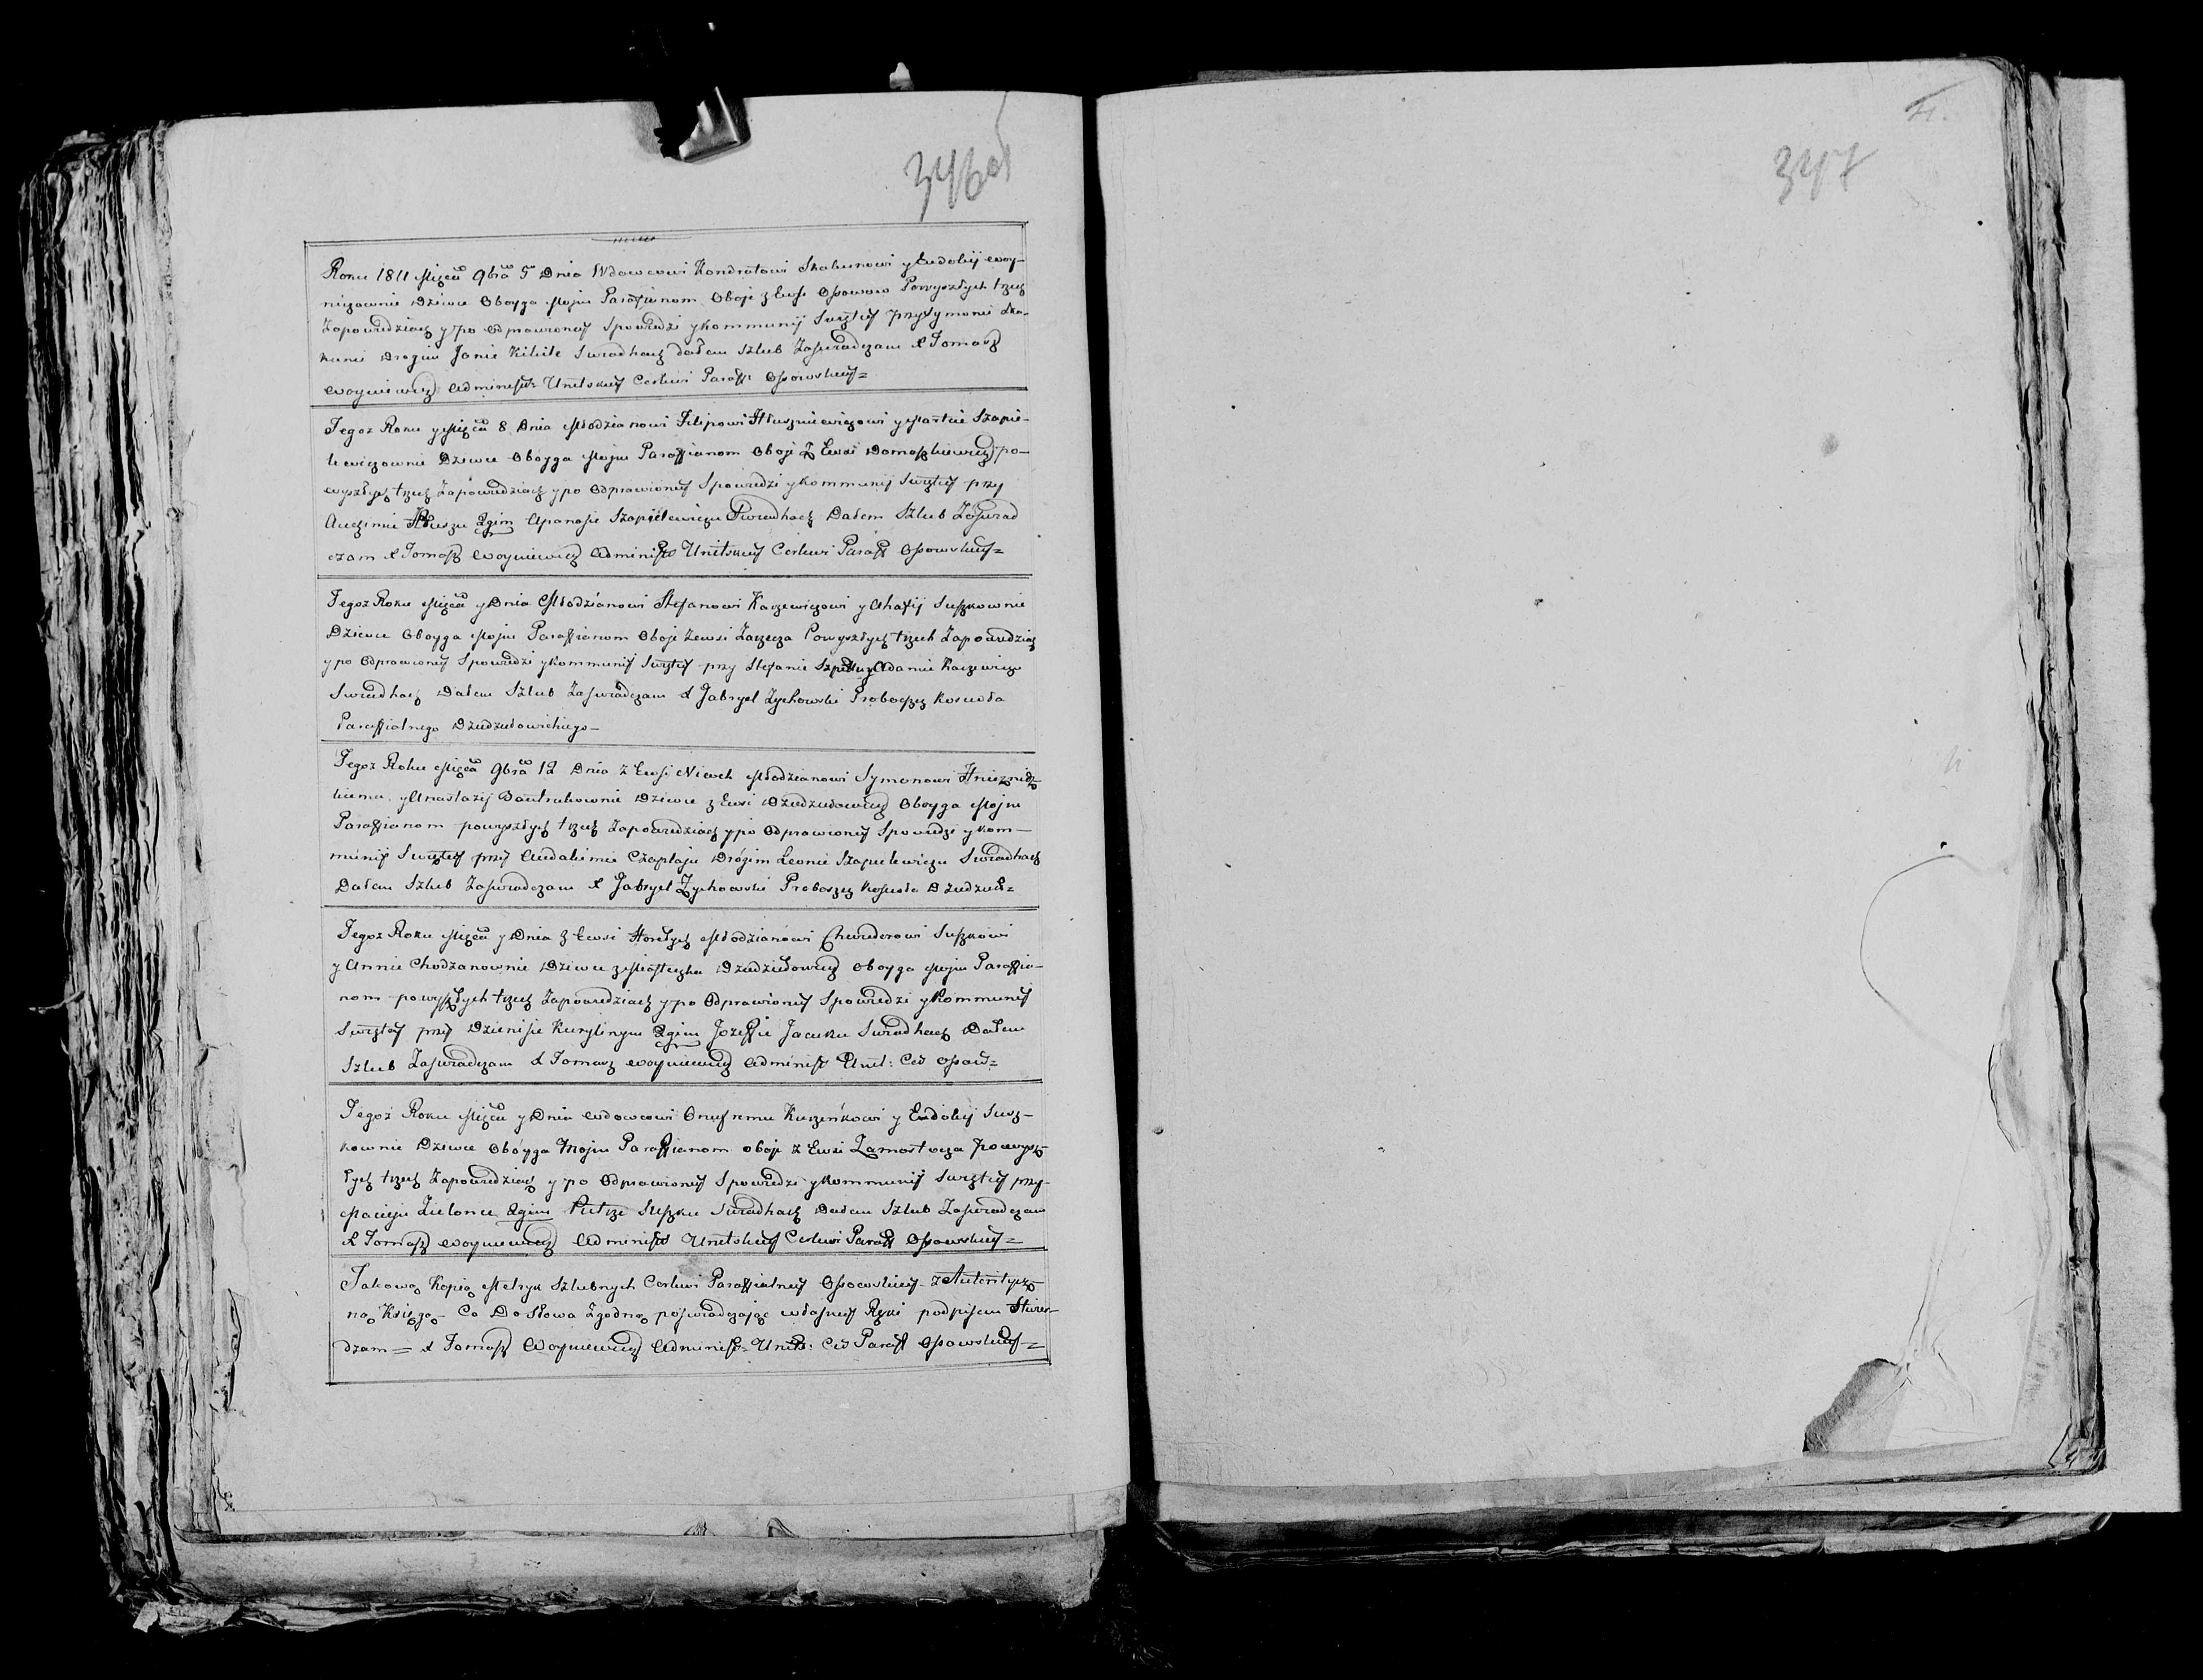 346об
Roku 1811 Mięca 9bra 5 Dnia Wdowcowi Kondratowi Skabunowi y Eudokij Woy-
nizownie Dziewce Oboyga Mojm Paraffianom Oboje z Ewsi Ossowow Powyszłych trzech
Zapowiedziach y po Odprawioney Spowiedzi y Kommunij Swiętey przy Symonie Ska-
kunie Drogim Janie Kikile Swiadkach dałem Szlub Zaswiadczam X Tomasz
Woyniewicz Administr Unitskiey Cerkwi Paraff Ossowskiey=
Tegoz Roku y Mięca 8 Dnia Młodzianowi Filipowi Hłuszniewiczowi y Martie Szapie-
lewiczownie Dziewce Oboyga Mojm Paraffianom Oboje Z Ewsi Domaszkiewicz po-
wyszłych trzech Zapowiedziach y po Odprawioney Spowiedzi y Kommunij Swiętey przy
2gim Apanasie Szapielewiczu Swiadkach Dałem Szlub Zaswiad
czam X Tomasz Woyniewicz Administr Unitskiey Cerkwi Paraff Ossowskiey=
Tegoz Roku Mięca y Dnia Młodzianowi Stefanowi Karzewiczowi y Ahafij Suszkownie
Dziewce Oboyga Mojm Paraffianom Oboje Zewsi Zarzecza Powyszłych trzech Zapowiedziach
y po Odprawioney Spowiedzi y Kommunij Swiętey przy Stefanie y Adamie Karzewiczu
Swiadkach Dałem Szlub Zaswiadczam X Gabryel Zychowski Proboszcz Koscioła
Paraffialnego Dziedziełowickiego-
Tegoz Roku Mięca 9bra 12 Dnia z Ewsi Niwek Młodzianowi Symonowi
y Anastazij Dziewce z Ewsi Dziedziełowicz Oboyga Mojm
Paraffianom powyszłych trzech Zapowiedziach y po Odprawioney Spowiedzi y Kom-
munij Swiętey przy Audakimie Czaplaju Drógim Leonie Szapielewiczu Swiadkach
Dałem Szlub Zaswiadczam X Gabryel Zychowski Proboszcz Koscioła Dziedzieł=
Tegoz Roku Mięca y Dnia z Ewsi Horełych Młodzianowi Chwiederowi Suszkowi
y Annie Chodzanownie Dziewce z Miasteczka Dziedziełowicz Oboyga Mojm Paraffia-
nom powyszłych trzech Zapowiedziach y po Odprawioney Spowiedzi y Kommunij
Swiętey przy Dzienisie Kurylinym 2gim Jozeffie Jacuku Swiadkach Dałem
Szlub Zaswiadczam X Tomasz Woyniewicz Administr Unit: Cer Ossow=
Tegoż Roku Mięca y Dnia Wdowcowi Onufremu Kuzieńkowi y Eudokij Susz-
kownie Dziewce Obóyga Mojm Paraffianom oboje z Ewsi Zamostocza Powysz-
łych trzech Zapowiedziach y po Odprawioney Spowiedzi y Kommunij Swiętey przy
Macieju Zieloncu 2gim Pietrze Suszku Swiadkach Dałem Szlub Zaswiadczam
X Tomasz Woyniewicz Administr Unitskiey Cerkwi Paraff Ossowskiey=
Takową Kopią Metryk Szlubnych Cerkwi Paraffialney Ossowskiey z Autentycz-
ną Księgą- Co Do Słowa Zgodną poswiadczając własney Ręki podpisem Stwier-
dzam = X Tomasz Woyniewicz Administr= Units: Cer Paraff Ossowskiey=
347